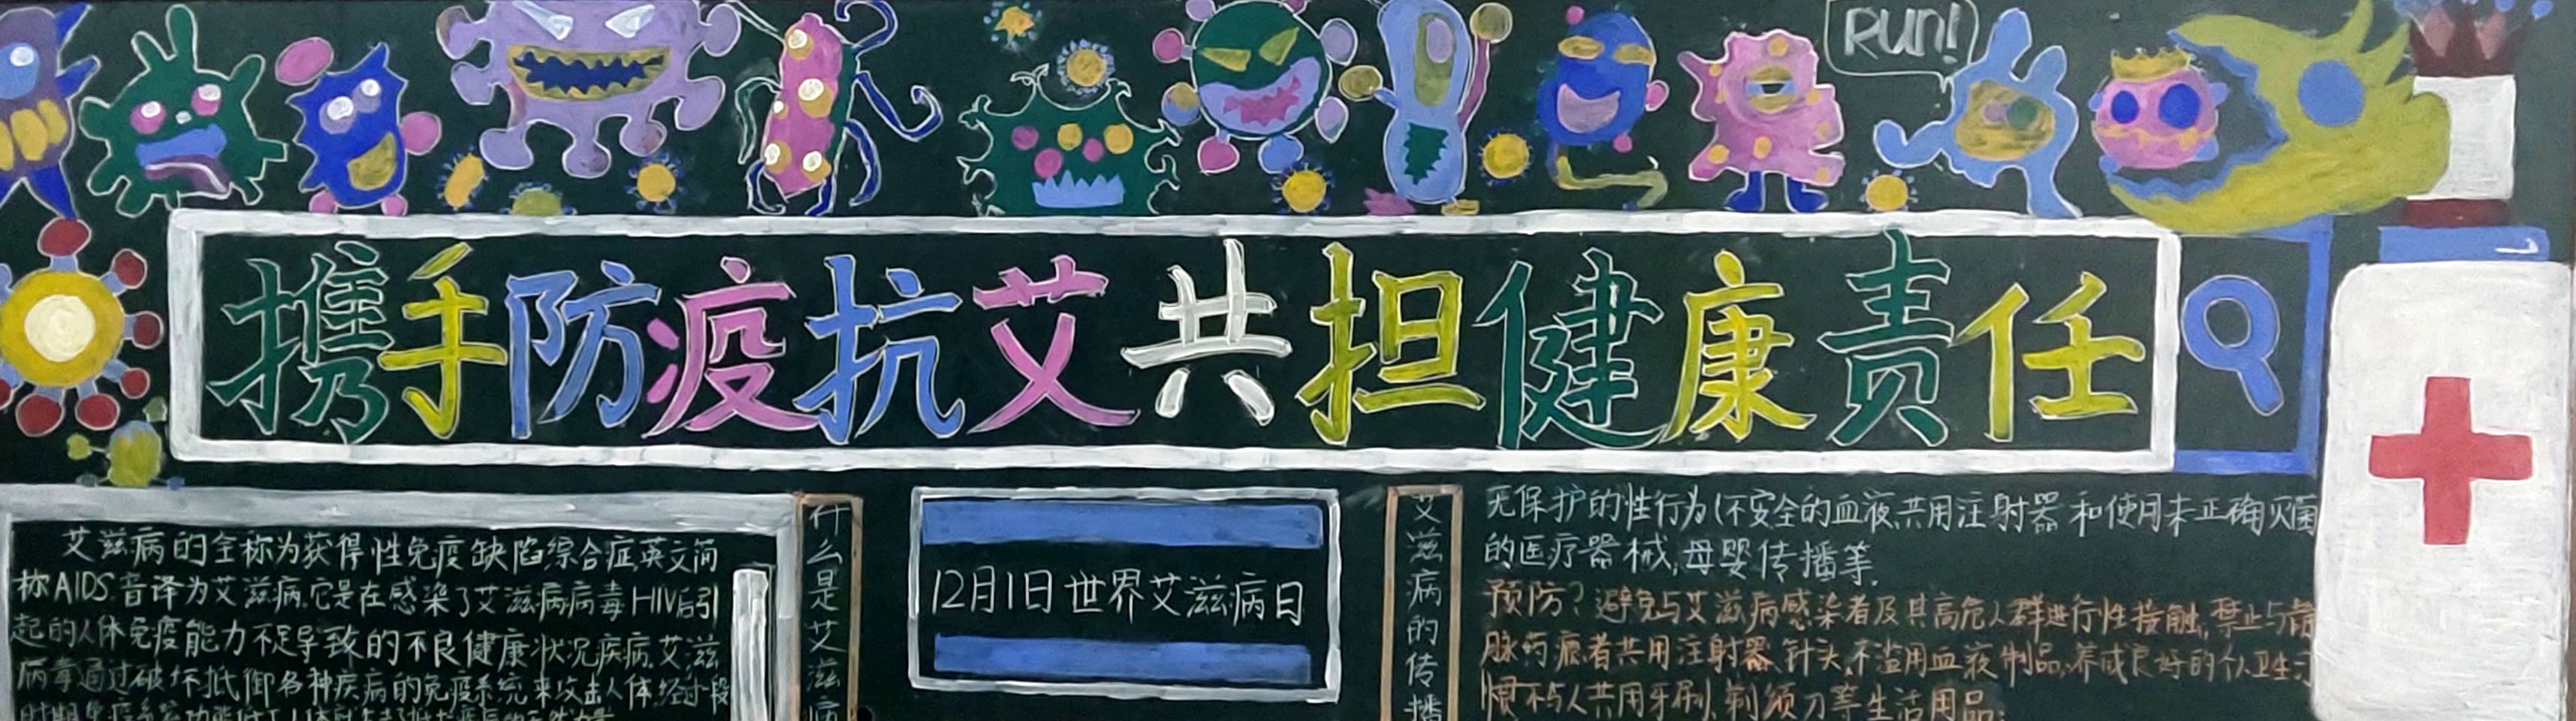 RUN!
携手防疫抗艾共担健康责任
艾滋病的全称为获得性免疫缺陷综合症,英文简
称AIDS.音译为艾滋病.它是在感染了艾滋病病毒HIV后引
起的人体免疫能力不足导致的不良健康状况疾病.艾滋
病毒通过破坏抵御各种疾病的免疫系统来攻击人体.经过一段
什么是艾滋病
12月1日世界艾滋病日
艾滋病的传播
无保护的性行为(不安全的血液,共用注射器和使用未正确灭菌
的医疗器械,母婴传播等.
预防?避免与艾滋病感染者及其高危人群进行性接触,禁止与静
脉药瘾者共用注射器、针头,不滥用血液制品,养成良好的个人卫生习
惯不与人共用牙刷、剃须刀等生活用品;